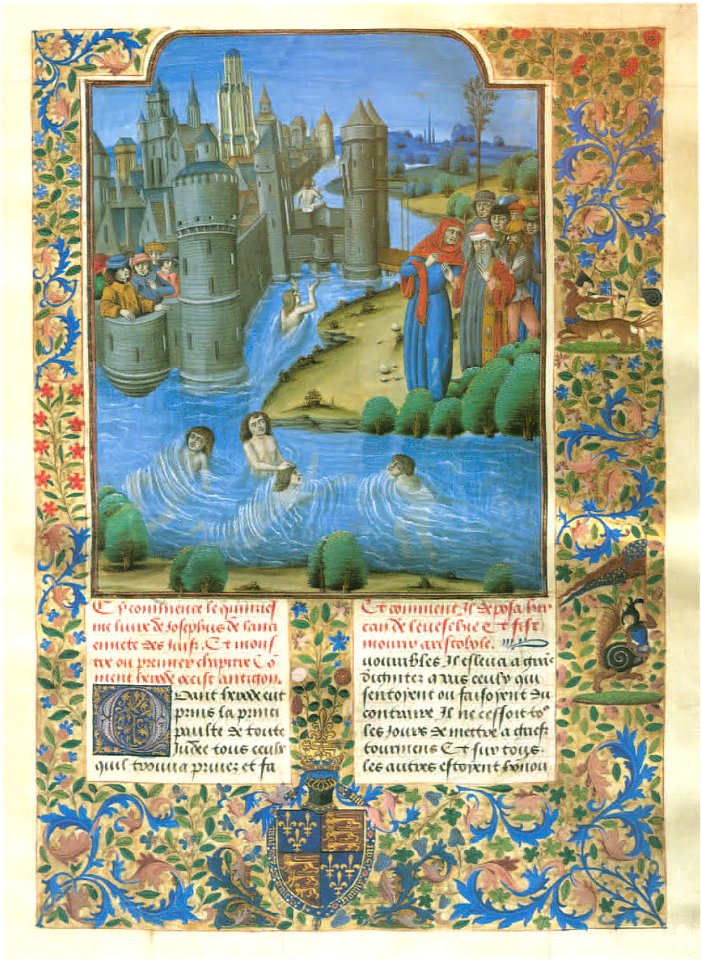 Cy commence le quinzies
me livre de Josephus de lanci
ennete des Juifz. Et mons
tre ou premier chapitre Co
ment herode occist antigon?
Quant herode eut
prins la princi
paulte de toute
Judee tous ceulx
quil trouva privez et fa
Et comment Il deposa hir
can de leveschie Et fist
mourir arestobole.
vourables Il esleva a grās
Digniter a tous ceulx qui
sentoyent ou faisoyent du
contraire Il ne cessoit to⁹
les Jours de mettre a griefz
tourmens Et sur tous
les autres estoyent honou
honi soit qui mal y pense